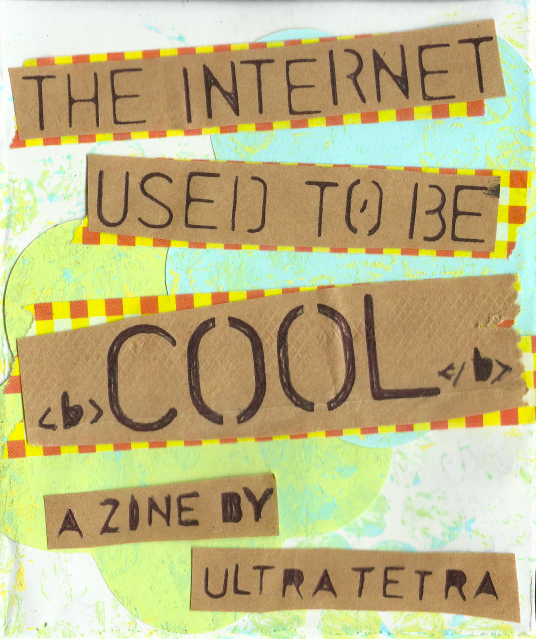 THE INTERNET
USED TO BE
<b>COOL</b>
A ZINE BY
ULTRATETRA